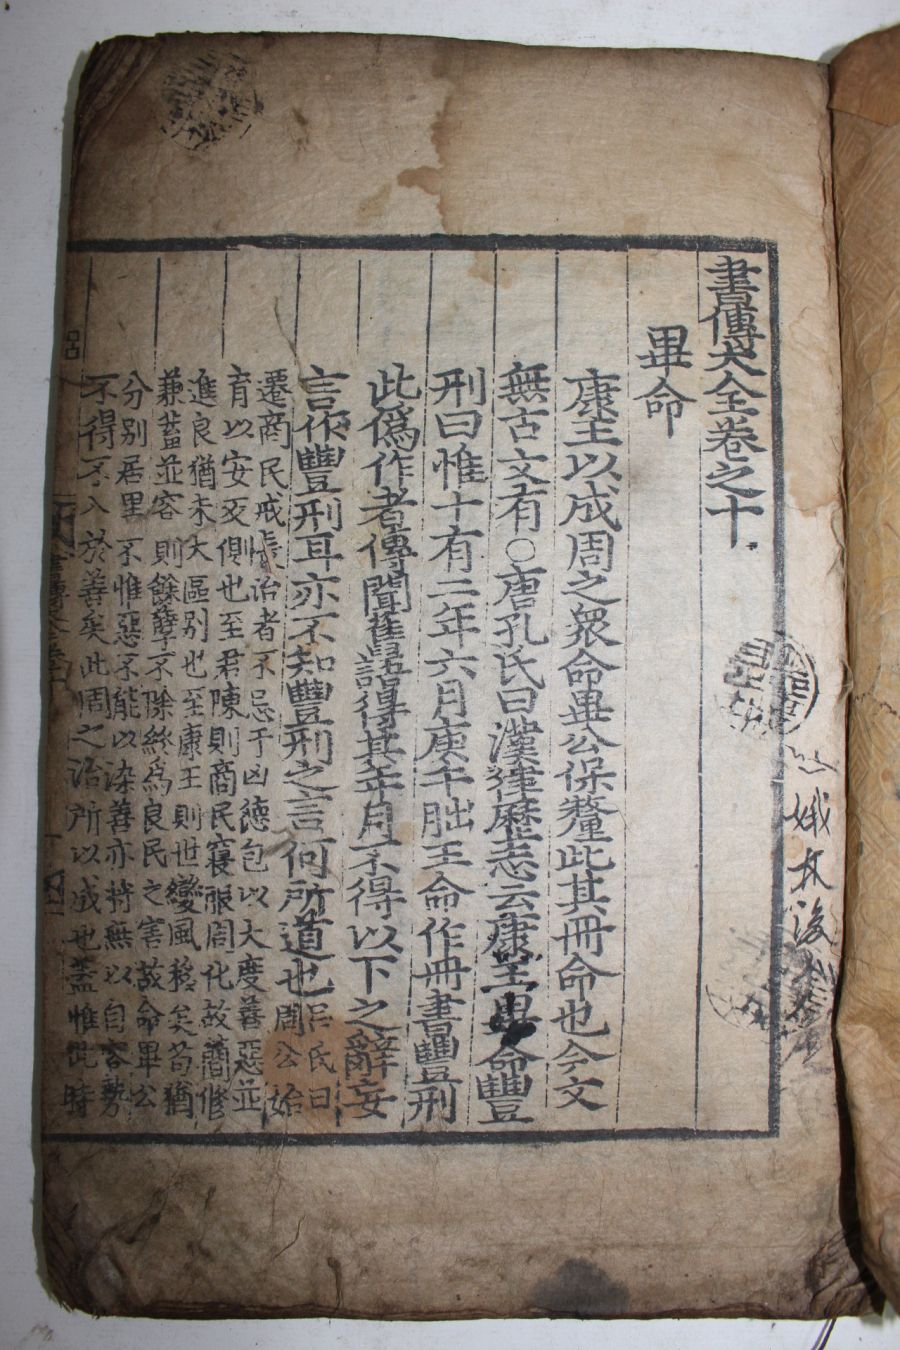 書傳大全卷之十
畢命
康王以成周之衆命畢公保釐此其冊命也今文
無古文有○唐孔氏曰漢律歷志云康王畢命豐
刑曰惟十有二年六月庚午朏王命作冊書豐刑
此僞作者傳聞舊語得其年月不得以下之辭妄
言作豐刑耳亦不知豐刑之言何所道也呂氏曰周公始
遷商民戒愼治者不忌于凶德包以大度善惡並
育以安反側也至君陳則商民寖服周化故簡修
進良猶未大區别也至康王則世變風移矣苟猶
兼蓄並容則餘孽不除終爲良民之害故命畢公
分别居里不惟惡不能以染善亦將無以自容勢
不得不入於善矣此周之治所以成也蓋惟此時